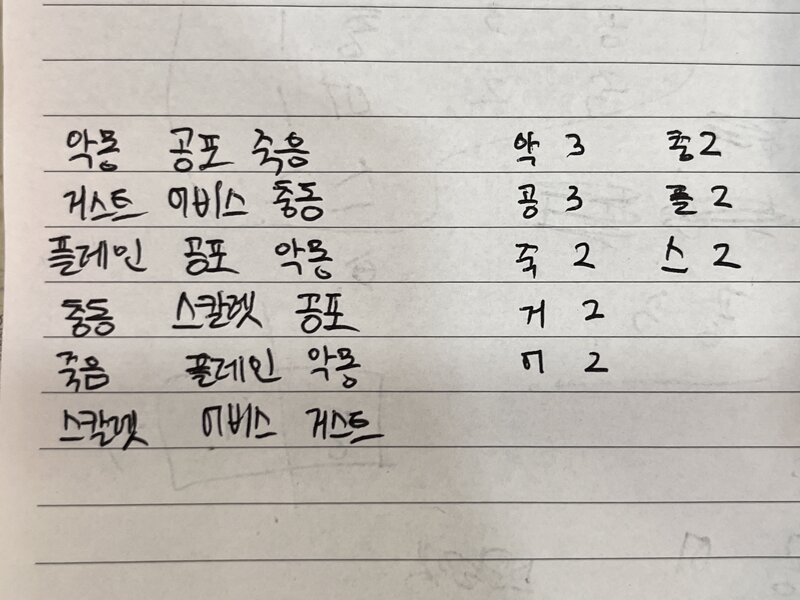 악몽 공포 죽음 악 3 충2
거스트 어비스 충동 공 3 플 2
플레인 공포 악몽 죽 2 스 2
충동 스칼렛 공포 거 2
죽음 플레인 악몽 어 2
스칼렛 어비스 거스트